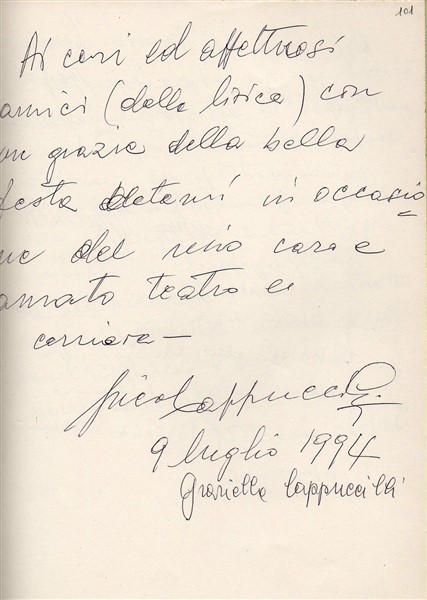 101
Ai cari ed affettuosi
amici (della lirica) con
un grazie della bella
festa datami in occasio
ne del mio caro e
amato teatro e
carriera —
Piero Cappuccilli
9 luglio 1994
Graziella Cappuccilli